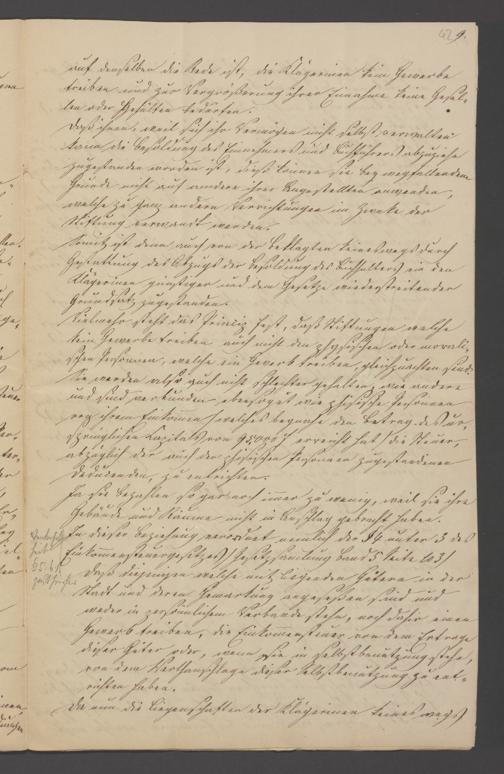 9.
auf denselben die Rede ist, die Klägerinen kein Gewerbe
treiben und zur Vergrößerung ihrer Einnahme keine Gesel-
len oder Gehülfen bedürfen.
Daß ihnen, weil sich ihr Vermögen nicht selbst verwalten
kann die Besoldung des Einnehmers und Buchführers abzuziehe
zugestanden worden ist, dieß können sie bey wegfallendem
Grunde nicht auf andere ihrer Angestellten anwenden,
welche zu ganz andern Verrichtungen im Zwecke der
Stiftung verwandt werden.
Somit ist denn auch von der Beklagten keineswegs durch
Gestattung des Abzugs der Besoldung des Buchhalters ein den
Klägerinen günstiger und dem Gesetze widerstreitender
Grundsatz zugestanden.
Vielmehr steht das Princip fest, daß Stiftungen welche
kein Gewerbe treiben auch nicht den physischen oder morali-
schen Personen, welche ein Gewerb treiben, gleichzuachten sind.
Sie werden also auch nicht schlechter gehalten, wie andere
und sind verbunden ebensogut wie physische Personen
von ihrem Einkommen welches beynahe den Betrag des ur-
sprünglichen Capitals von erreicht hat die Steuer,
abzüglich der auch den physischen Personen zugestandenen
zu entrichten.
Ja sie bezahlen so gar noch immer zu wenig, weil sie ihre
Gebäude und Räume nicht in Anschlag gebracht haben.
In dieser Beziehung verordnet nemlich der § 4 unter 3 des
Einkommensteuergesetzes (Gesetzsammlung Band 5 Seite 103)
Daß diejenigen welche mit liegenden Gütern in der
Stadt und deren Gemarkung angesessen sind und
weder in persönlichem Verbande stehen, noch dahier einen
Gewerb treiben, die Einkommensteuer von dem Ertrage
dieser Güter oder, wenn sie in Selbstbenutzung stehen,
von dem Werthanschlage dieser Selbstbenutzung zu ent-
richten haben.
Da nun die Liegenschaften der Klägerinen keineswegs